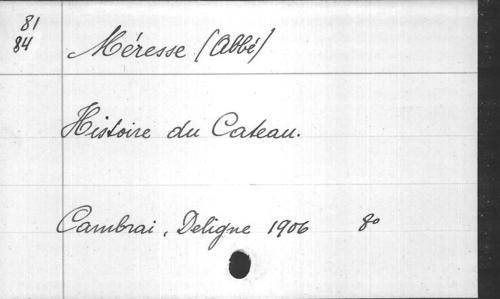 81
84
Méresse (Abbé)
Histoire du Cateau.
Cambrai, Deligne 1906 8°